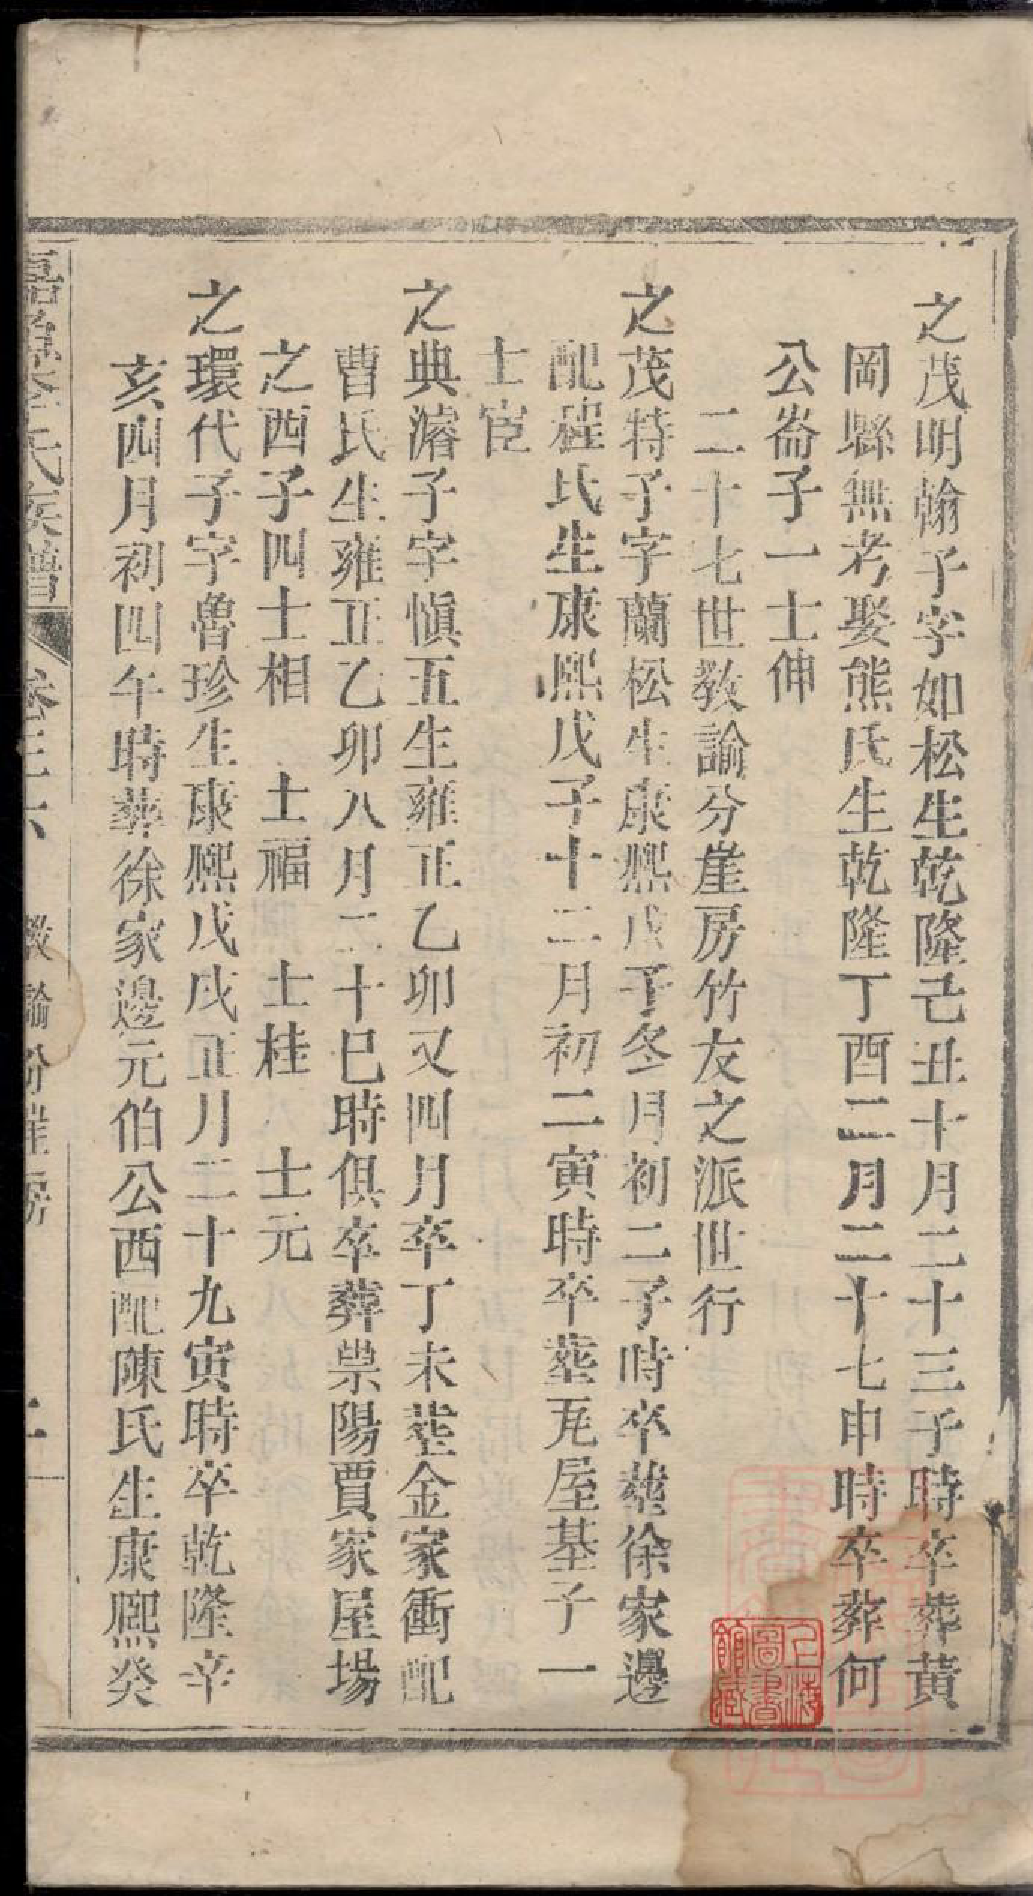 之茂明翰子字如松生乾隆己丑十月二十三子時卒葬黃
岡縣無考娶熊氏生乾隆丁酉二月二十七申時卒葬何
公崙子一士伸
二十七世教諭分崖房竹友之派世行
之茂特子字蘭松生康熙戊子冬月初二子時卒葬徐家邊
配程氏生康熙戊子十二月初二寅時卒塟瓦屋基子一
士宦
之典濬子字慎五生雍正乙卯又四月卒丁未塟金家衝配
曹氏生雍正乙卯八月二十巳時俱卒葬崇陽賈家屋場
之酉子四士相　士福　士桂　士元
之環代子字魯珍生康熙戊戌正月二十九寅時卒乾隆辛
亥四月初四午時葬徐家邊元伯公西配陳氏生康熙癸
氏族譜
卷三六
教諭分崖房
二
上海圖書館藏